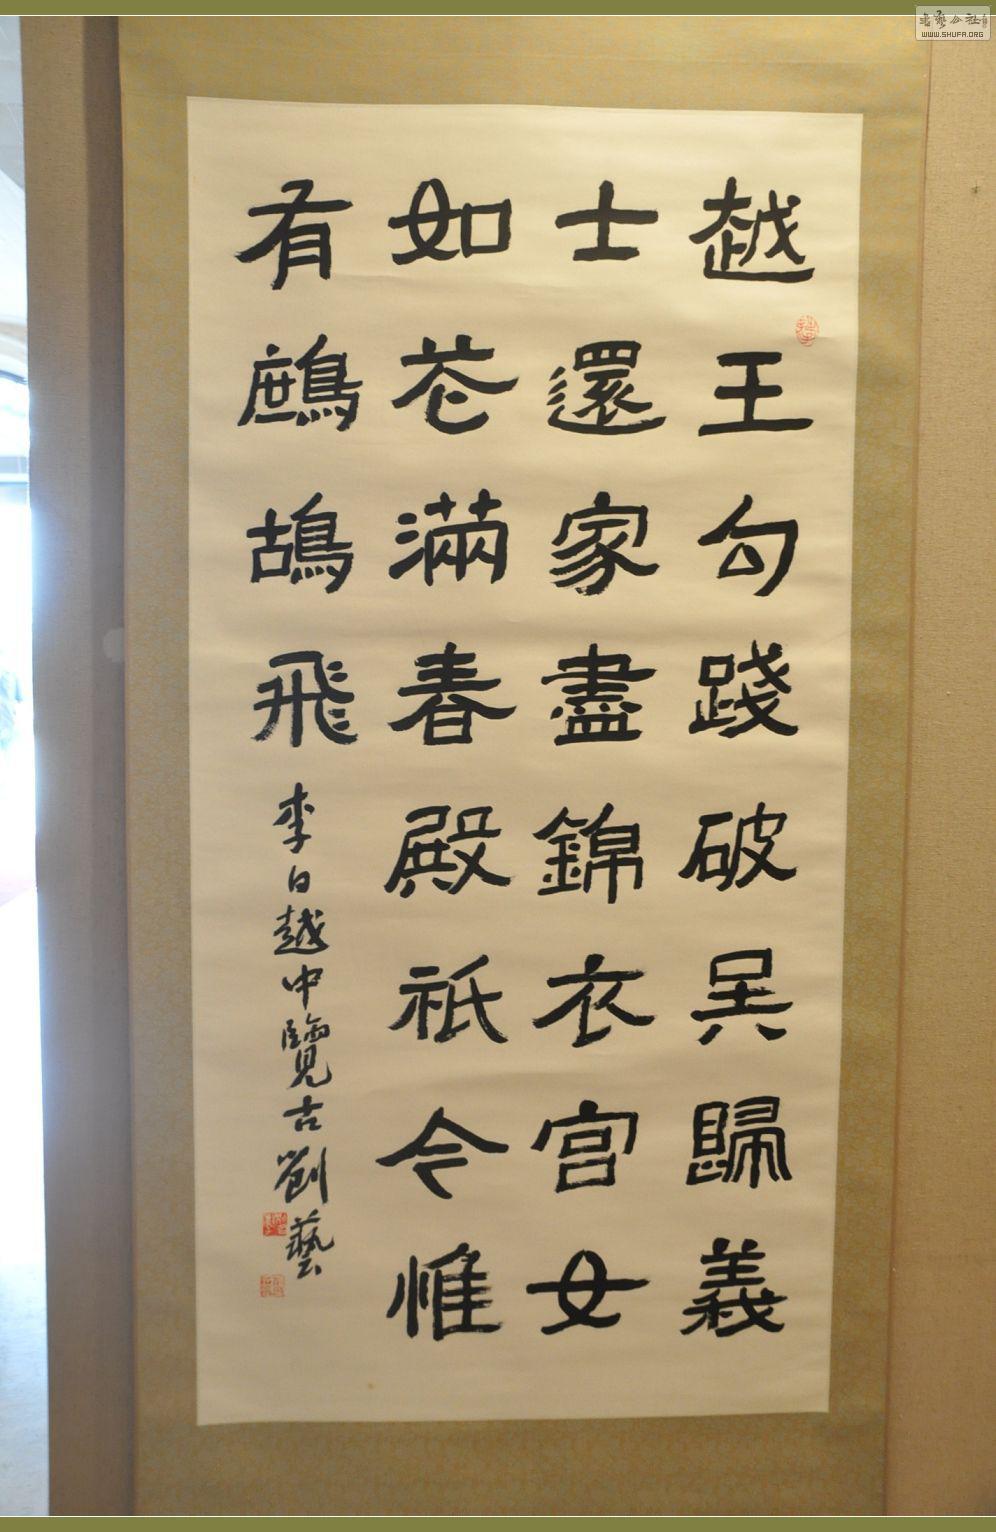 越王勾踐破吳歸義
士還家盡錦衣宮女
如花滿春殿祇今惟
有鷓鴣飛
李白越中覽古劉藝
書藝公社
WWW.SHUFA.ORG